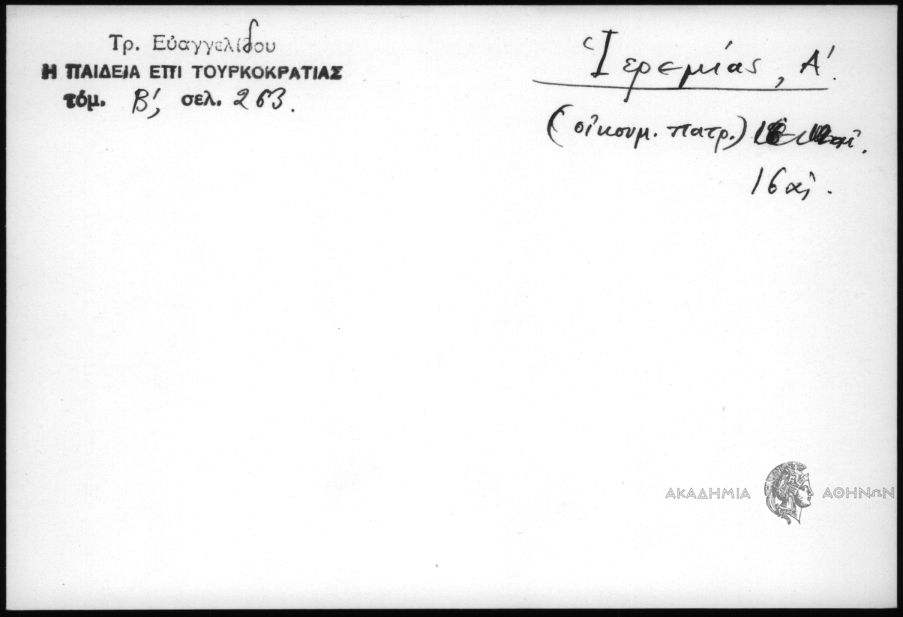 Τρ. Εὐαγγελίδου
Η ΠΑΙΔΕΙΑ ΕΠΙ ΤΟΥΡΚΟΚΡΑΤΙΑΣ
τόμ. Β', σελ. 263.
Ἱερεμίας, Α'.
(οἰκουμ. πατρ.)
16 αἰ.
ΑΚΑΔΗΜΙΑ ΑΘΗΝΩΝ